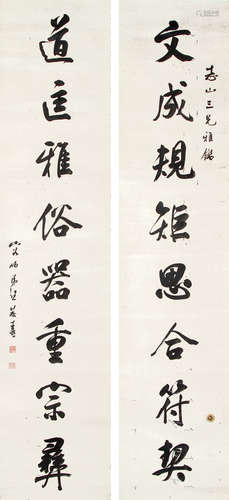 文成規矩思合符契
道匡雅俗器重宗彝
山三兄雅鑑